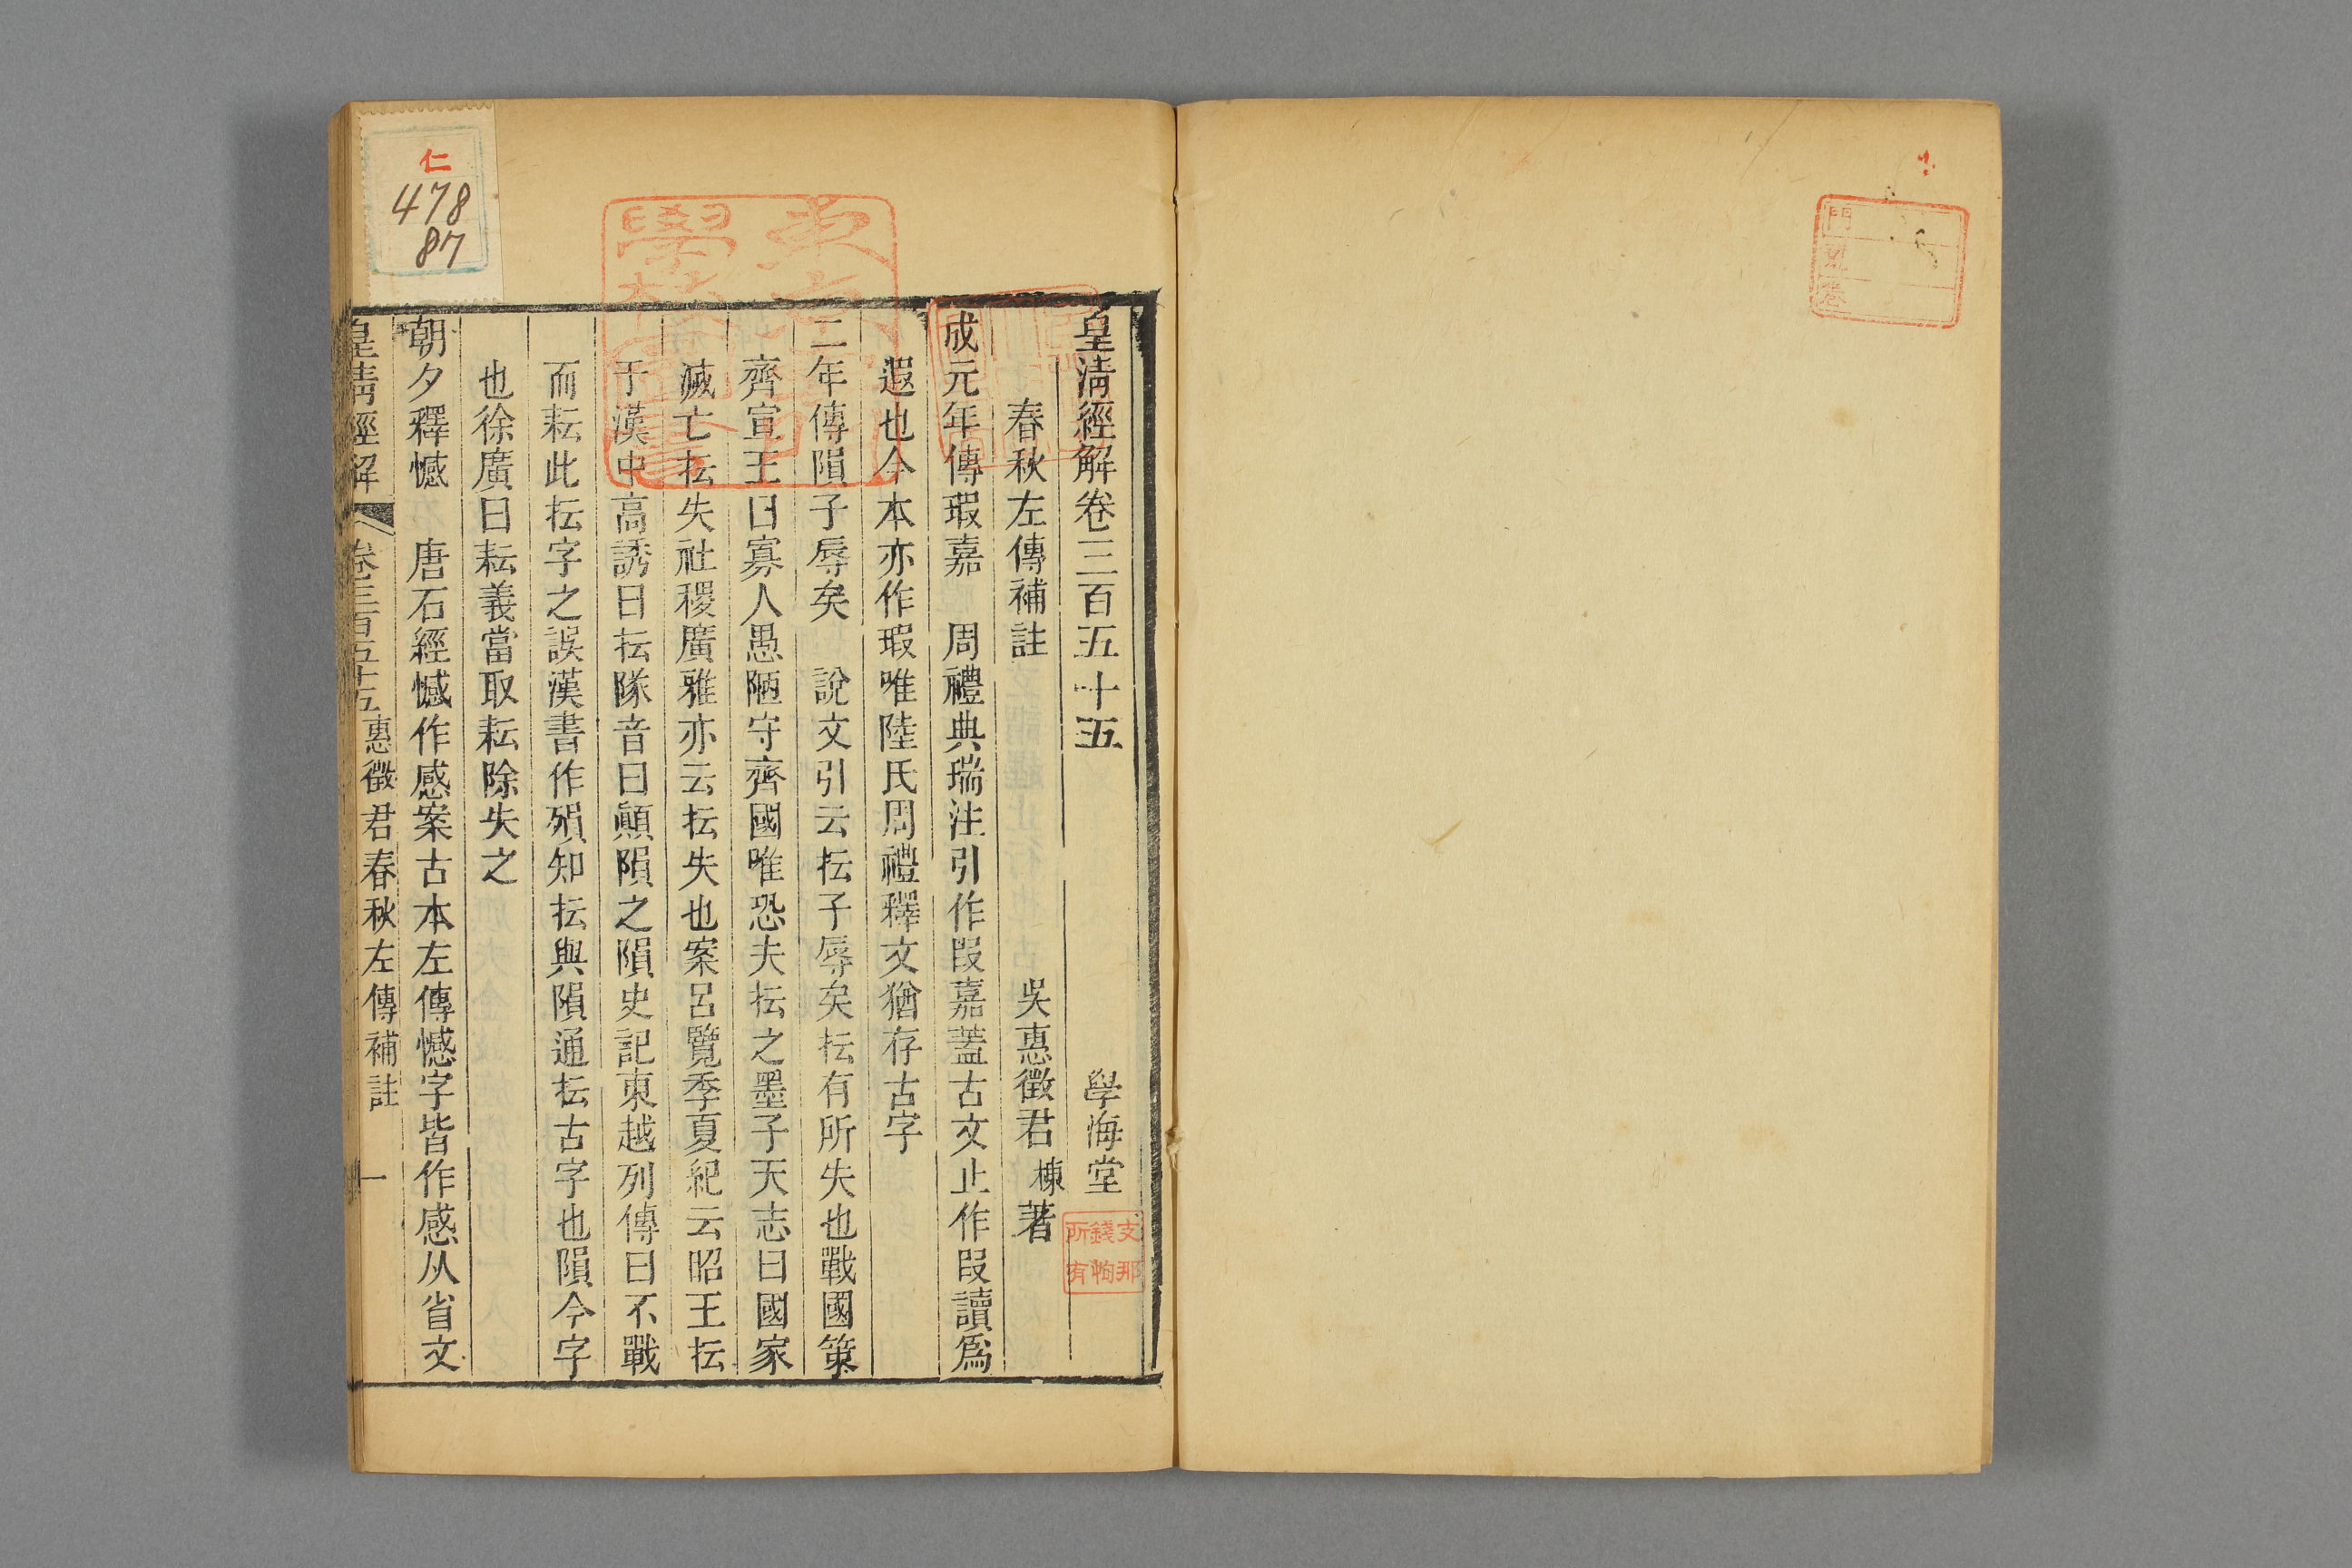 皇清經解卷三百五十五 學海堂
春秋左傳補註 吳惠徵君棟著
成元年傳瑕嘉 周禮典瑞注引作叚嘉蓋古文止作叚讀爲
遐也今本亦作瑕唯陸氏周禮釋文猶存古字
二年傳隕子辱矣 說文引云抎子辱矣抎有所失也戰國策
齊宣王曰寡人愚陋守齊國唯恐夫抎之墨子天志曰國家
滅亡抎失社稷廣雅亦云抎失也案呂覽季夏紀云昭王抎
于漢中高誘曰抎隊音曰顛隕之隕史記東越列傳曰不戰
而耘此抎字之誤漢書作殞知抎與隕通抎古字也隕今字
也徐廣曰耘義當取耘除失之
朝夕釋憾 唐石經憾作感案古本左傳憾字皆作感从省文
皇清經解 卷三百五十五 惠徵君春秋左傳補註 一
仁
478
87
支那
錢恂
所有
門
號
卷